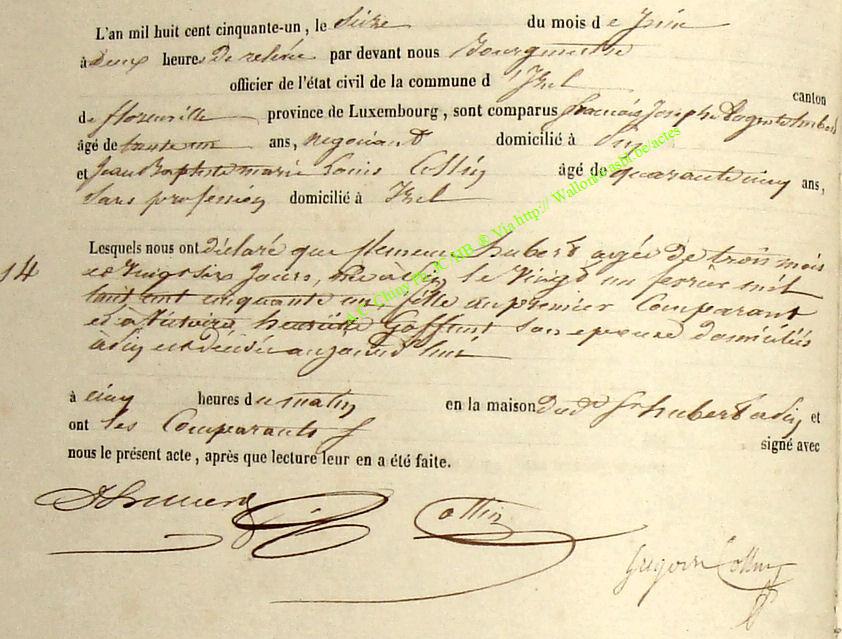 L'an mil huit cent cinquante-un, le seize du mois de Juin
à deux heures de relevée par devant nous Bourgmestre
officier de l'état civil de la commune d'Izel canton
de florenville province de Luxembourg, sont comparus francois Joseph hubert
âgé de trente un ans, negociant domicilié à
et Jean Baptiste marie Louis Collin âgé de quarante cinq ans,
sans profession domicilié à Izel
14
Lesquels nous ont déclaré que hubert agée de trois mois
et vingt six Jours, née le vingt un fevrier mil
huit cent cinquante un fille du premier Comparant
et à Victoire Goffinet son epouse domiciliés
est décédée aujourd'hui
à cinq heures du matin en la maison dudt hubert et
ont les Comparants signé avec
nous le présent acte, après que lecture leur en a été faite.
Collin
Gregoire Collin
A.E. Chiny Ph. JC HB ® Via http:// Wallonie asbl.be/actes